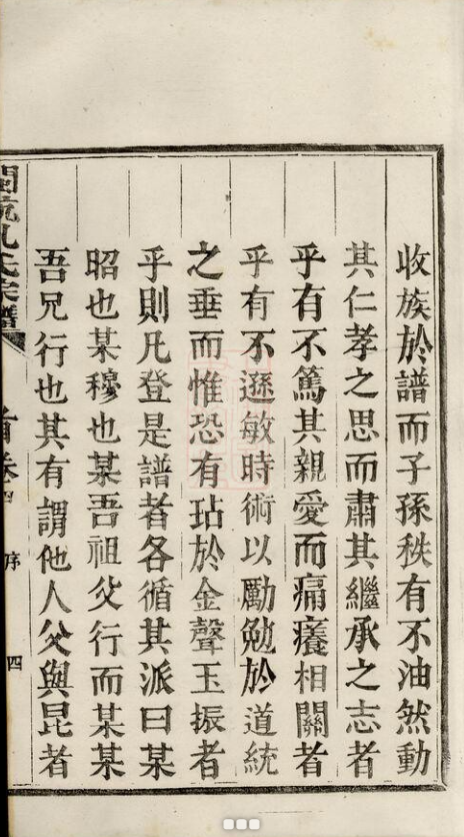 收族於譜而子孫秩有不油然動
其仁孝之思而肅其繼承之志者
乎有不篤其親愛而痛癢相關者
乎有不遜敏時術以勵勉於道統
之垂而惟恐有玷於金聲玉振者
乎則凡登是譜者各循其派曰某
昭也某穆也某吾祖父行而某某
吾兄行也其有謂他人父與昆者
孔氏宗譜
首卷
序
四